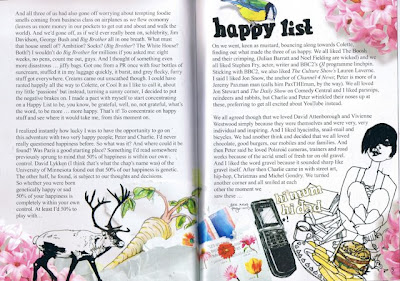 And all three of us had also gone off worrying about tempting foodie
smells coming from business class on airplanes as we flew economy
(leaves us more money in our pockets to get out and about and walk the
world). And we'd gone off, as if we'd ever really been on, celebrity, Jim
Davidson, George Bush and Big Brother all in one breath. What must
that house smell of? Ambition? Socks? (Big Brother? The White House?
Both?) I wouldn't do Big Brother for millions if you asked me: eight
weeks, no pens, count me out, guys. And I thought of something even
more disastrous ... jiffy bags. Got one from a PR once with four tins of
sardines, stuffed it in my luggage quickly, it burst, and grey, flecky, furry
stuff got everywhere. Cesaria came out unscathed though. I could have
ranted happily all the way to Colette, or Cool It as I like to call it, about
my little 'passions' but instead, turning a sunny corner, I decided to put
the negative brakes on. I had a funny feeling that if we start concentrating
on a Happy List to be, you know, be grateful, well, no, not grateful, what's
the word, to be more ... more happy. That's it! To concentrate on happy
stuff and see where it would take me, from this moment on.
I realized instantly how lucky I was to have the opportunity to go on
this adventure with two very happy people; Peter and Charlie. I'd never
really questioned happiness before. So what was it? And where could it be
found? Was this a good starting place? Something I'd read somewhere
previously sprang to mind that 50% of happiness is within our own
control. David Lykken (I think that's what the chap's name was) of the
University of Minnesota found out that 50% of our happiness is genetic.
The other half, he found, is subject to our thoughts and decisions.
So whether you were born
genetically happy or sad
50% of your happiness is
completely within your own
control. At least I'd 50% to
play with ..
happy list
On we went, keen as mustard, bouncing along towards Colette,
finding out what made the three of us happy. We all liked The Boosh
and their crimping, (Julian Barratt and Noel Fielding are wicked) and we
all liked Stephen Fry, actor, writer and BBC2's QI programme lynchpin.
Sticking with BBC2, we also liked The Culture Show's Lauren Laverne.
And I liked Jon Snow, the anchor of Channel 4 News; Peter is more of a
Jeremy Paxman man (calls him PaxTHEman, by the way). We all loved
Jon Stewart and The Daily Show on Comedy Central and I liked parsnips,
reindeers and rabbits, but Charlie and Peter wrinkled their noses up at
these, preferring to get all excited about YouTube instead.
We all agreed though that we loved David Attenborough and Vivienne
Westwood simply because they were themselves and were very, very
individual and inspiring. And I liked hyacinths, snail-mail and
bicycles. We had another think and decided that we all loved
chocolate, good burgers, our mobiles and our families. And
then Peter said he loved Polaroid cameras, trainers and road
works because of the acrid smell of fresh tar on old gravel.
And I liked the word gravel because it sounded sharp like
gravel itself. After that Charlie came in with street art,
hip-hop, Christmas and Michel Gondry. We turned
another corner and all smiled at each
other the moment we
saw these ...